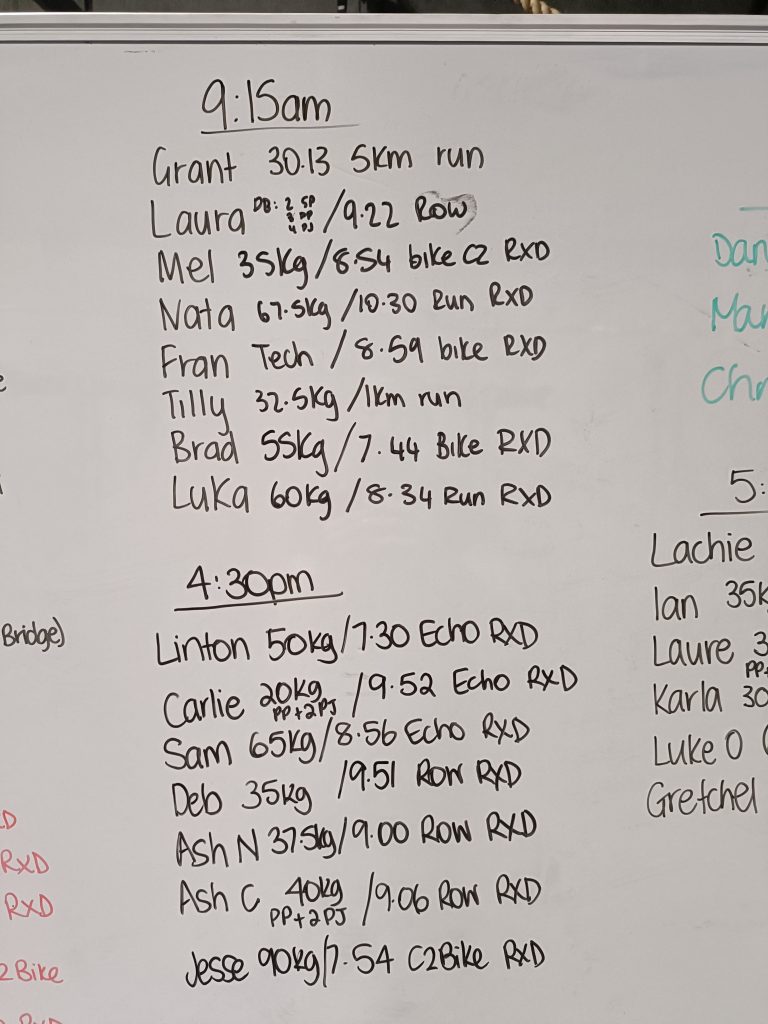 9:15am
Grant 30.13 5km run
Laura DB: 2 SP 3 PP 4 PJ /9.22 Row
Mel 35kg/8.54 bike C2 RXD
Nata 67.5kg/10.30 Run RXD
Fran Tech / 8.59 bike RXD
Tilly 32.5kg/1km run
Brad 55kg/7.44 Bike RXD
Luka 60kg/8.34 Run RXD
4:30pm
Linton 50kg/7.30 Echo RXD
Carlie 20kg PP+2PJ /9.52 Echo RXD
Sam 65kg/8.56 Echo RXD
Deb 35kg /9.51 Row RXD
Ash N 37.5kg/9.00 Row RXD
Ash C 40kg PP+2PJ /9.06 Row RXD
Jesse 90kg/7.54 C2Bike RXD
Bridge)
RXD
RXD
2Bike
Dan
Mar
Chr
5:
Lachie
Ian 35k
Laure 3
PP+
Karla 30
Luke O
Gretchel